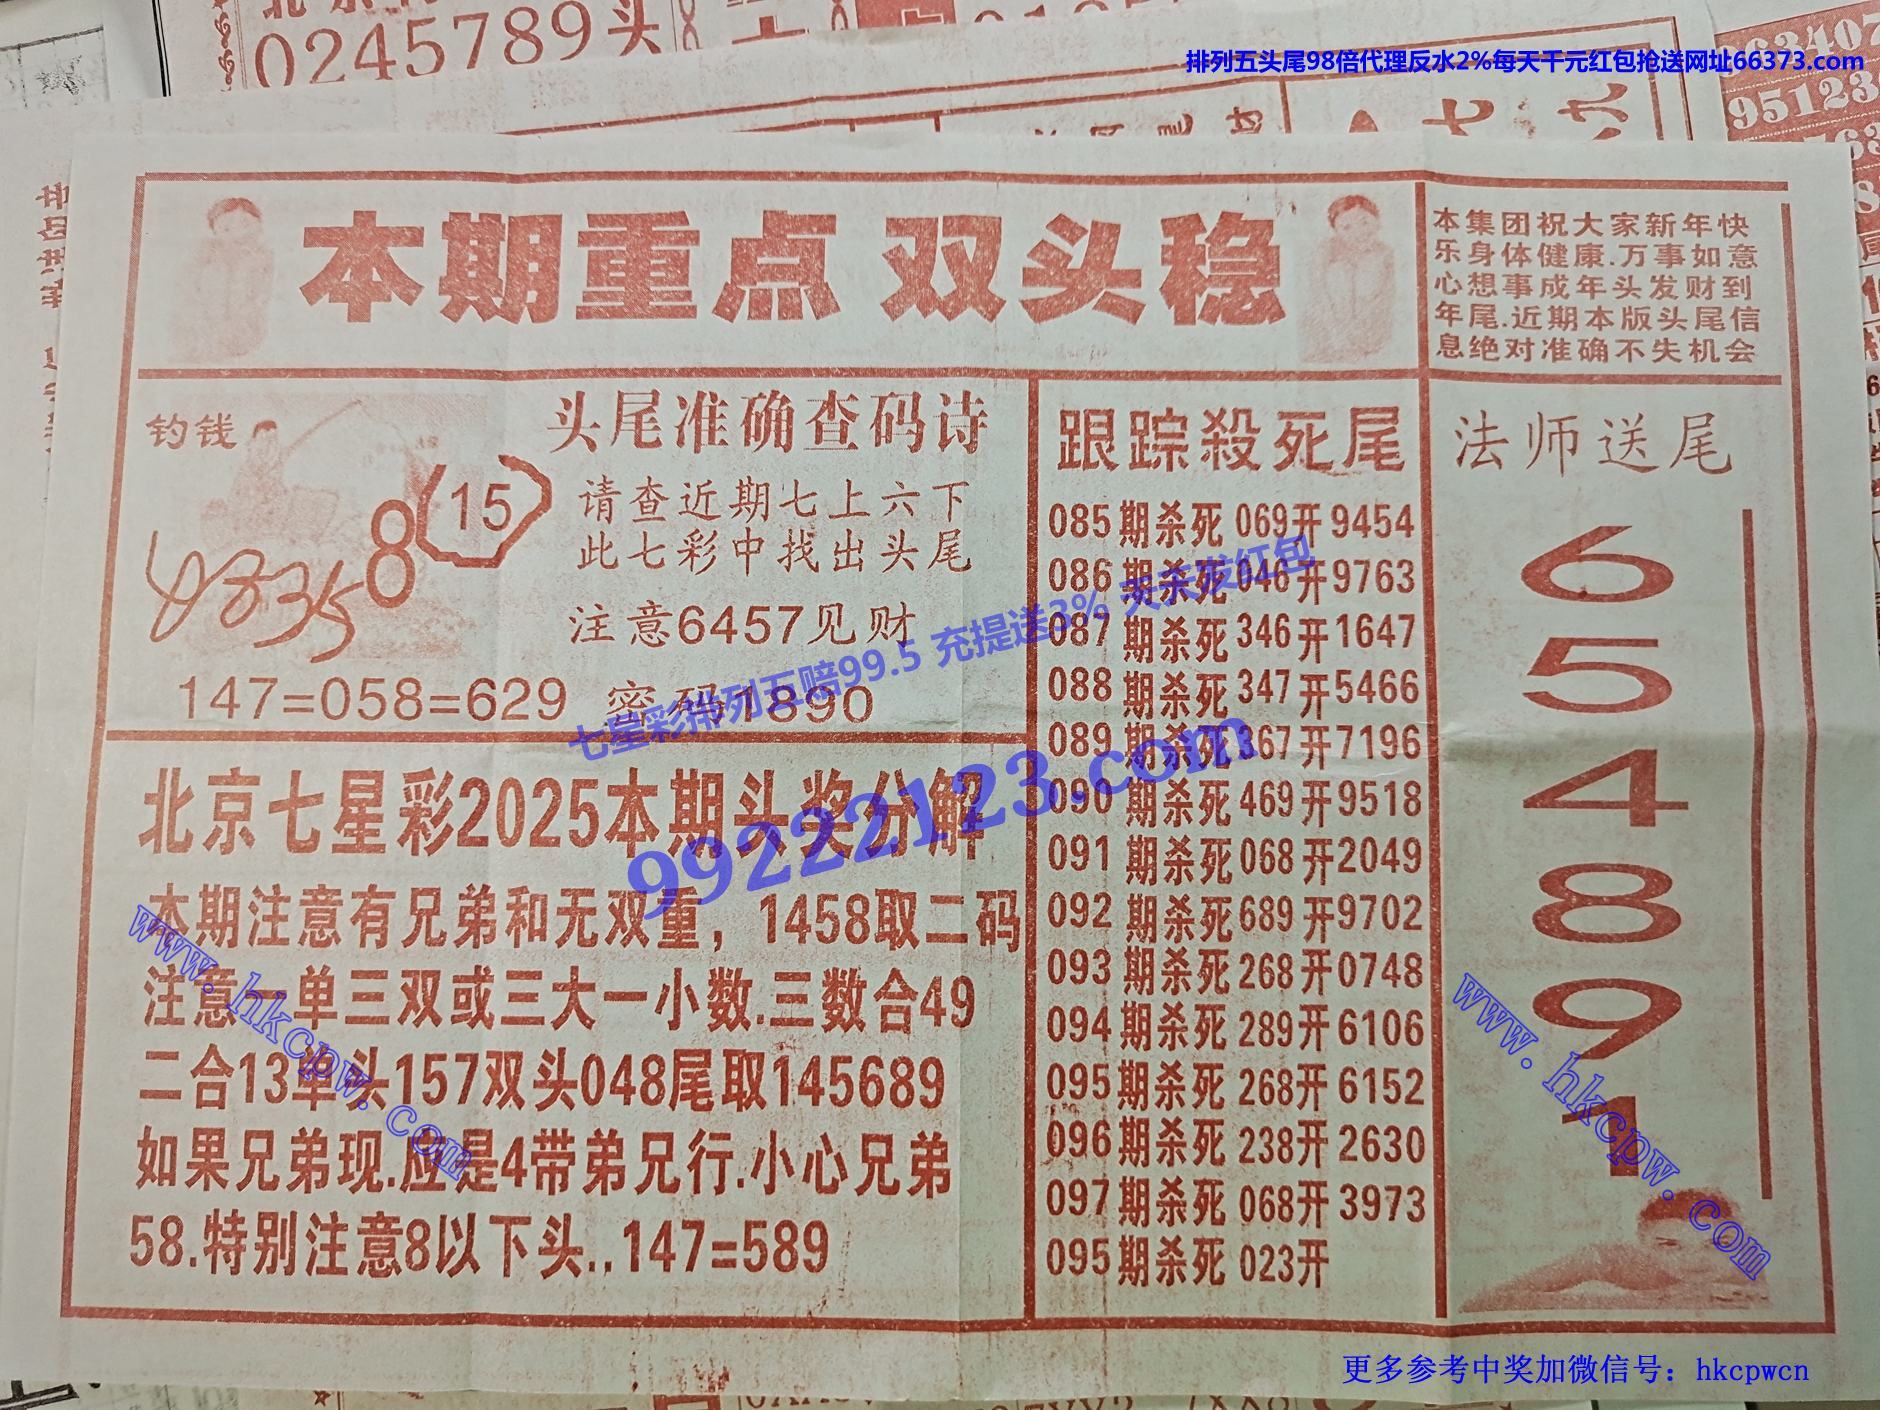 0245789头
排列五头尾98倍代理反水2%每天千元红包抢送网址66373.com
本期重点 双头稳
本集团祝大家新年快
乐身体健康.万事如意
心想事成年头发财到
年尾.近期本版头尾信
息绝对准确不失机会
钓钱
8
15
48335
头尾准确查码诗
请查近期七上六下
此七彩中找出头尾
注意6457见财
147=058=629 密码1890
七星彩排列五赔99.5 充提送3% 天天发红包
99222123.com
北京七星彩2025本期头奖分解
本期注意有兄弟和无双重，1458取二码
注意一单三双或三大一小数.三数合49
二合13单头157双头048尾取145689
如果兄弟现.应是4带弟兄行.小心兄弟
58.特别注意8以下头..147=589
跟踪殺死尾
085期杀死069开9454
086期杀死046开9763
087期杀死346开1647
088期杀死347开5466
089期杀死367开7196
090期杀死469开9518
091期杀死068开2049
092期杀死689开9702
093期杀死268开0748
094期杀死289开6106
095期杀死268开6152
096期杀死238开2630
097期杀死068开3973
095期杀死023开
法师送尾
6
5
4
8
9
1
www.hkcpw.com
www.hkcpw.com
更多参考中奖加微信号：hkcpwcn